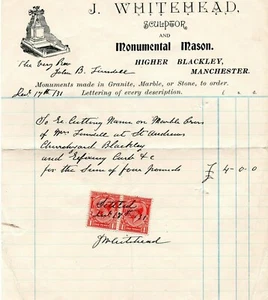 J. WHITEHEAD,
SCULPTOR
AND
Monumental Mason.
HIGHER BLACKLEY,
MANCHESTER.
The Very Rev
John B. Tinsdell
Monuments made in Granite, Marble, or Stone, to order.
Dec 17th /31 Lettering of every description.
To Cutting Name on Marble Cross
of Mrs Tinsdell at St Andrews
Churchyard Blackley
and Kerb &c
for the Sum of four pounds £ 4-0-0
Settled
Dec 17th 31
J Whitehead